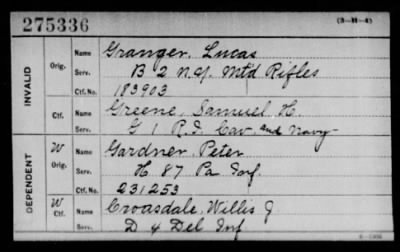 275336 (3-H-4)
INVALID
Orig. Name Granger, Lucas
Serv. B 2 N.Y. Mt'd Rifles
Ctf. No. 183903
Ctf. Name Greene, Samuel H.
Serv. G 1 R.I. Cav. and Navy
DEPENDENT
W Orig. Name Gardner, Peter
Serv. H. 87 Pa Inf.
Ctf. No. 231253
W Ctf. Name Croasdale, Willis J
Serv. D 4 Del Inf